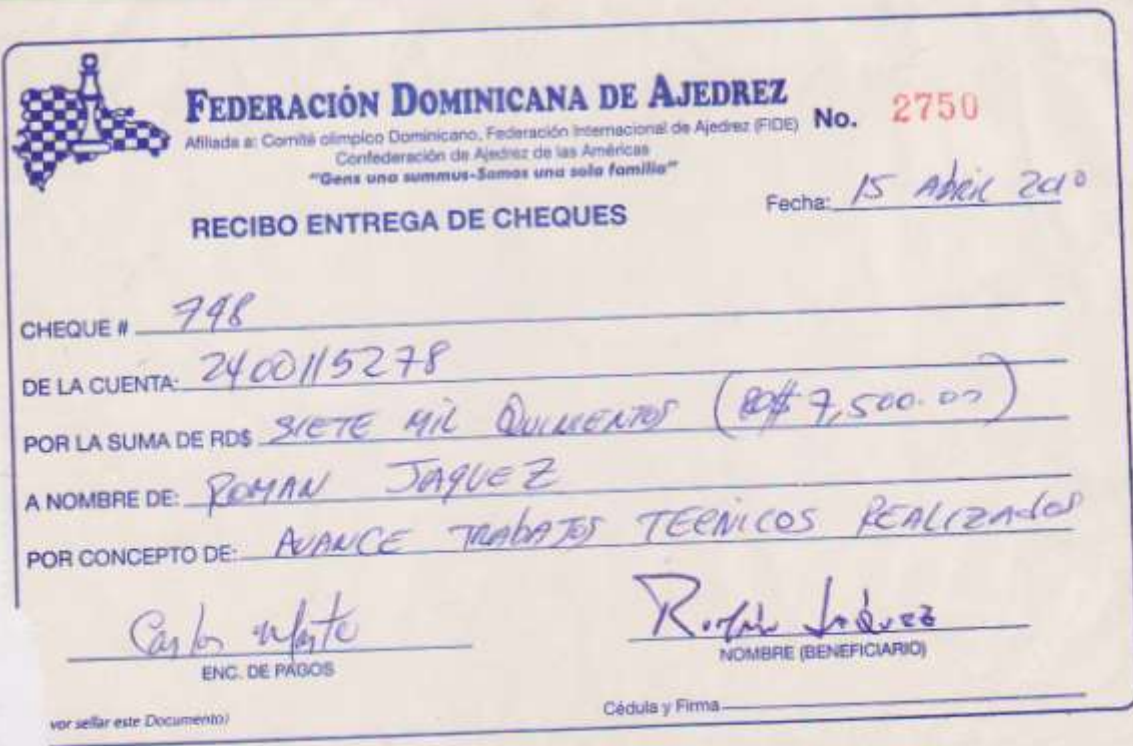 FEDERACIÓN DOMINICANA DE AJEDREZ
No. 2750
Afiliada a: Comité olímpico Dominicano, Federación Internacional de Ajedrez (FIDE)
Confederación de Ajedrez de las Américas
"Gens una summus-Somos una sola familia"
Fecha: 15 Abril 2010
RECIBO ENTREGA DE CHEQUES
CHEQUE # 798
DE LA CUENTA: 2400115278
POR LA SUMA DE RD$ SIETE MIL QUINIENTOS (RD$ 7,500.00)
A NOMBRE DE: ROMAN JAQUEZ
POR CONCEPTO DE: AVANCE TRABAJOS TECNICOS REALIZADOS
Carlos Román Jáquez
ENC. DE PAGOS NOMBRE (BENEFICIARIO)
Cédula y Firma
vor sellar este Documento)